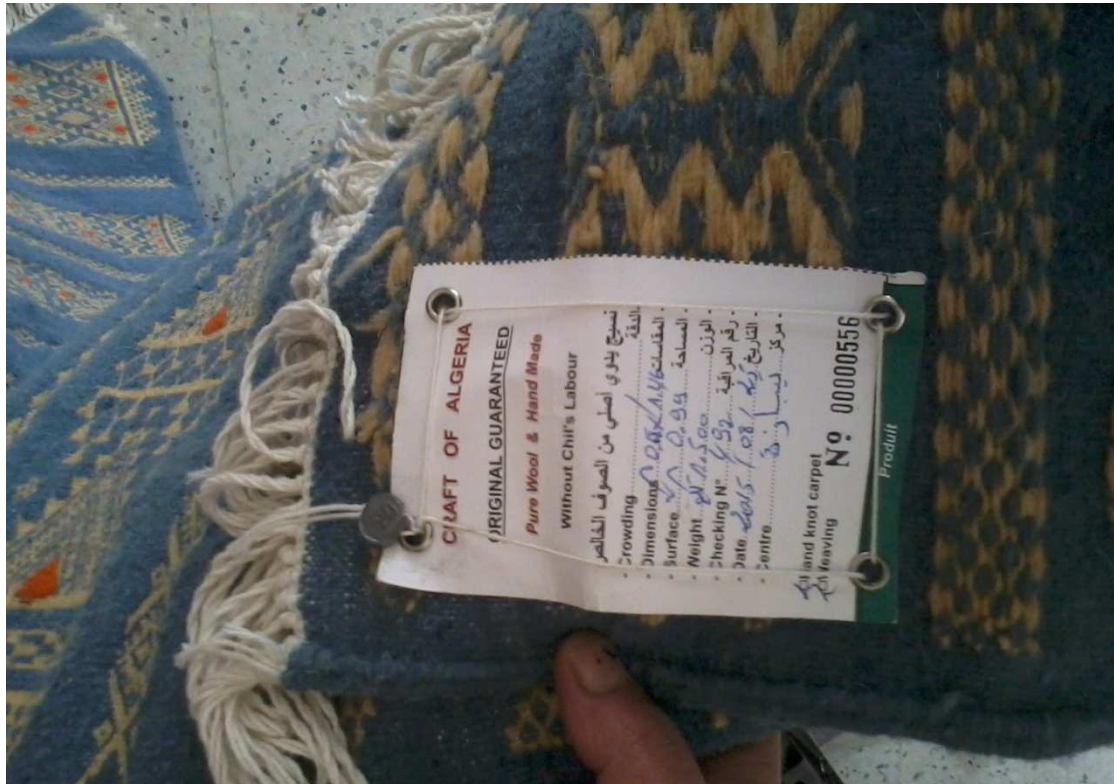 CRAFT OF ALGERIA
ORIGINAL GUARANTEED
Pure Wool & Hand Made
Without Chil's Labour
نسيج يدوي أصلي من الصوف الخالص
- Crowding ........ الدقة -
- Dimensions ........ المقاسات -
- Surface ... 0.99 ... المساحة -
- Weight ... 1.500 ... الوزن -
- Checking N° ... 492 ... رقم المراقبة -
- Date ... 2015/08/ ... التاريخ -
- Centre ........ مركز -
Hand knot carpet
Weaving
Nº 00000556
Produit